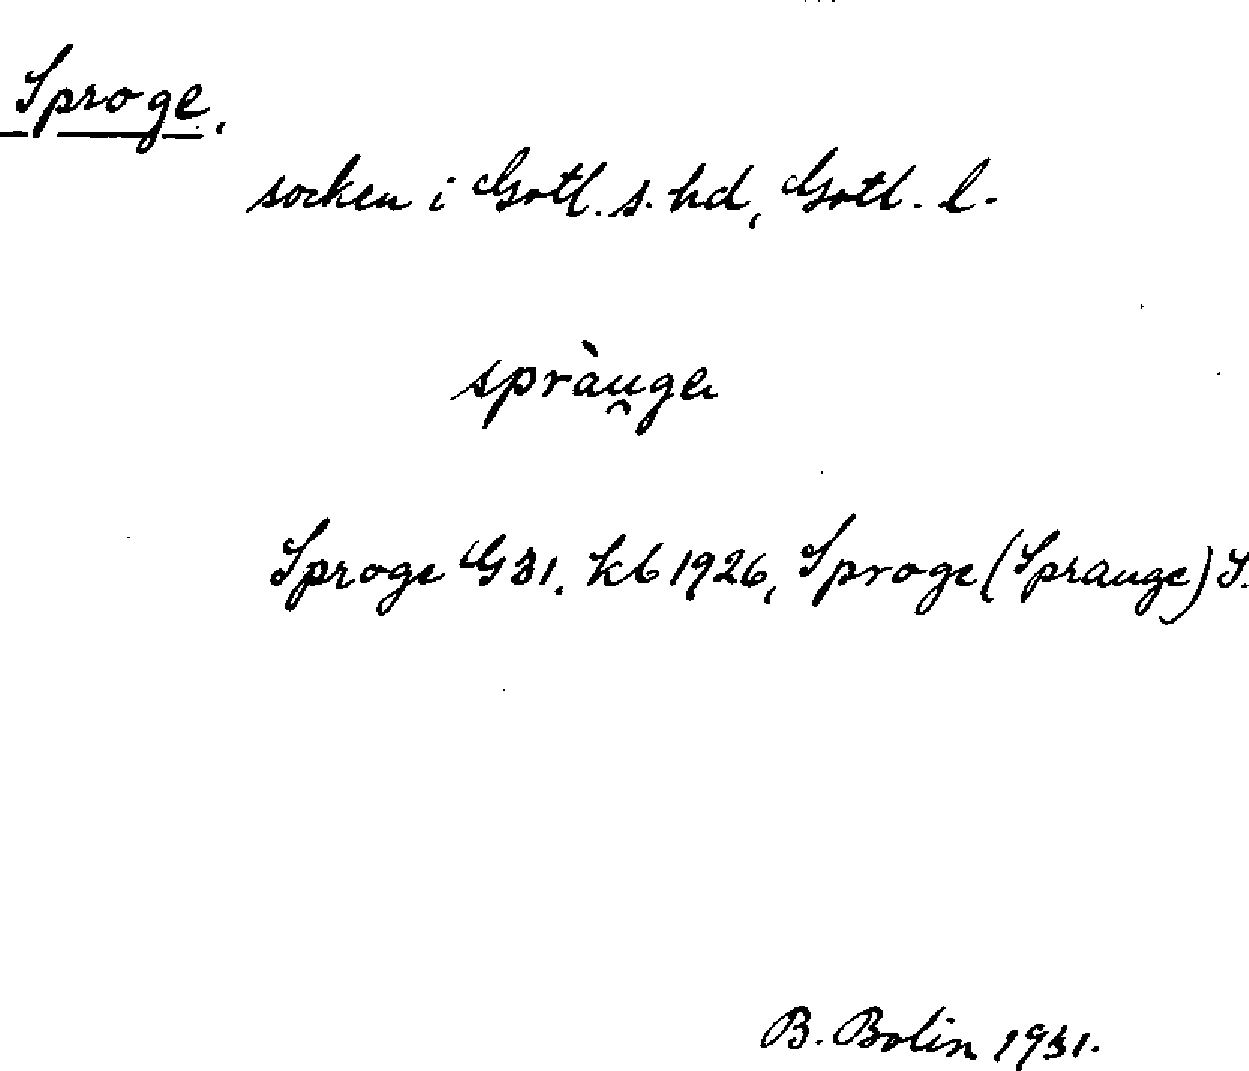 Sproge.
socken i Gotl. s. hd, Gotl. l.
spràu̯ge
Sproge G31, kb 1926, Sproge (Sprauge) S.
B. Bolin 1931.